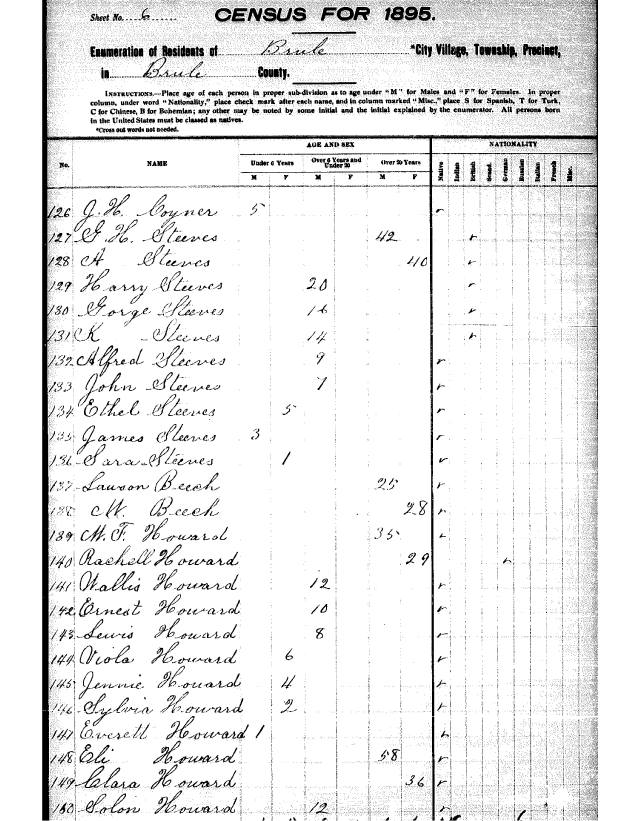 Sheet No. 6
CENSUS FOR 1895.
Enumeration of Residents of Brule *City Village, Township, Precinct,
in Brule County.
INSTRUCTIONS.—Place age of each person in proper sub-division as to age under "M" for Males and "F" for Females. In proper
column, under word "Nationality," place check mark after each name, and in column marked "Misc.," place S for Spanish, T for Turk,
C for Chinese, B for Bohemian; any other may be noted by some initial and the initial explained by the enumerator. All persons born
in the United States must be classed as natives.
*Cross out words not needed.
AGE AND SEX NATIONALITY
No. NAME Under 6 Years Over 6 Years and Under 20 Over 20 Years
M F M F M F Native Indian British Scand. German Russian Italian French Misc.
126 J. H. Coyner 5
127 G. H. Steeves 42
128 A Steeves 40
129 Harry Steeves 20
130 Gorge Steeves 16
131 K Steeves 14
132 Alfred Steeves 9
133 John Steeves 7
134 Ethel Steeves 5
135 James Steeves 3
136 Sara Steeves 1
137 Lawson Beech 25
138 M. Beech 28
139 M. F. Howard 35
140 Rachell Howard 29
141 Wallis Howard 12
142 Ernest Howard 10
143 Lewis Howard 8
144 Viola Howard 6
145 Jennie Howard 4
146 Sylvia Howard 2
147 Everett Howard 1
148 Eli Howard 58
149 Clara Howard 36
150 Solon Howard 12